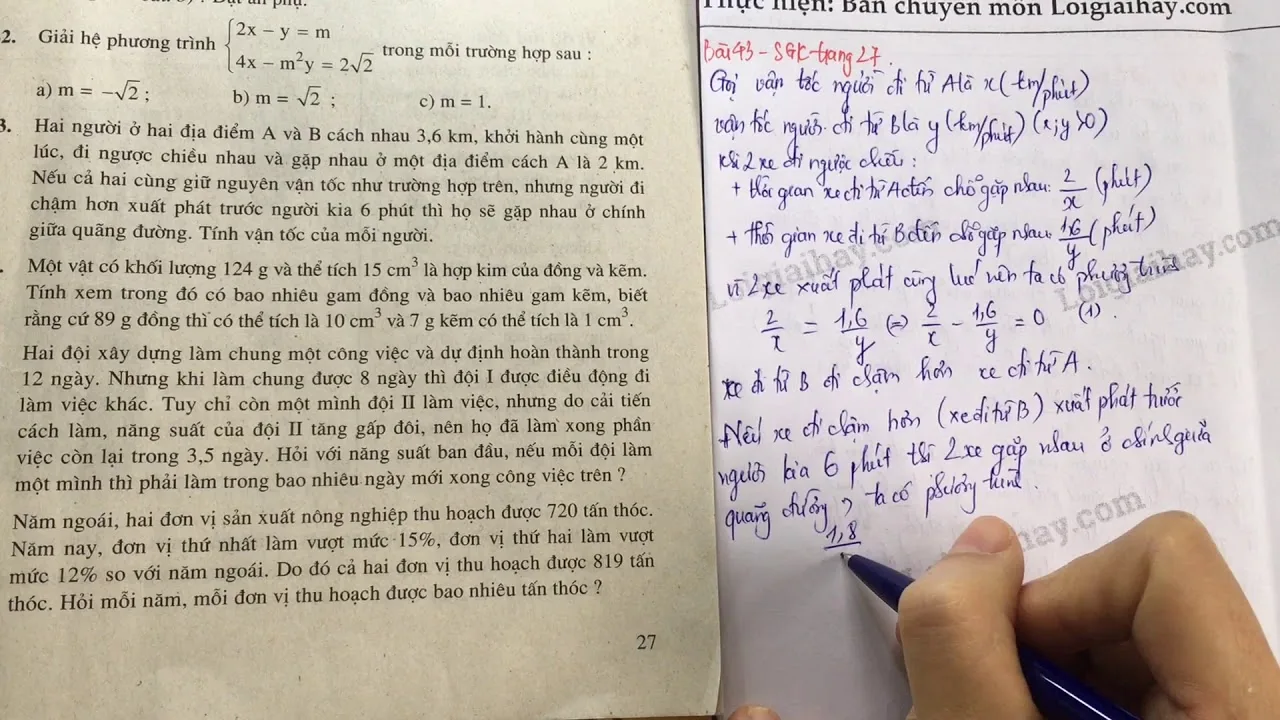 2. Giải hệ phương trình { 2x − y = m
4x − m²y = 2√2 trong mỗi trường hợp sau :
a) m = −√2 ; b) m = √2 ; c) m = 1.
3. Hai người ở hai địa điểm A và B cách nhau 3,6 km, khởi hành cùng một
lúc, đi ngược chiều nhau và gặp nhau ở một địa điểm cách A là 2 km.
Nếu cả hai cùng giữ nguyên vận tốc như trường hợp trên, nhưng người đi
chậm hơn xuất phát trước người kia 6 phút thì họ sẽ gặp nhau ở chính
giữa quãng đường. Tính vận tốc của mỗi người.
. Một vật có khối lượng 124 g và thể tích 15 cm³ là hợp kim của đồng và kẽm.
Tính xem trong đó có bao nhiêu gam đồng và bao nhiêu gam kẽm, biết
rằng cứ 89 g đồng thì có thể tích là 10 cm³ và 7 g kẽm có thể tích là 1 cm³.
Hai đội xây dựng làm chung một công việc và dự định hoàn thành trong
12 ngày. Nhưng khi làm chung được 8 ngày thì đội I được điều động đi
làm việc khác. Tuy chỉ còn một mình đội II làm việc, nhưng do cải tiến
cách làm, năng suất của đội II tăng gấp đôi, nên họ đã làm xong phần
việc còn lại trong 3,5 ngày. Hỏi với năng suất ban đầu, nếu mỗi đội làm
một mình thì phải làm trong bao nhiêu ngày mới xong công việc trên ?
Năm ngoái, hai đơn vị sản xuất nông nghiệp thu hoạch được 720 tấn thóc.
Năm nay, đơn vị thứ nhất làm vượt mức 15%, đơn vị thứ hai làm vượt
mức 12% so với năm ngoái. Do đó cả hai đơn vị thu hoạch được 819 tấn
thóc. Hỏi mỗi năm, mỗi đơn vị thu hoạch được bao nhiêu tấn thóc ?
27
Thực hiện: Ban chuyên môn Loigiaihay.com
Bài 43 - SGK - trang 27.
Gọi vận tốc người đi từ A là x (km/phút)
vận tốc người đi từ B là y (km/phút) (x; y > 0)
Khi 2 xe đi ngược chiều :
+ thời gian xe đi từ A đến chỗ gặp nhau: 2/x (phút)
+ thời gian xe đi từ B đến chỗ gặp nhau: 1,6/y (phút)
Vì 2 xe xuất phát cùng lúc nên ta có phương trình
2/x = 1,6/y ⇔ 2/x - 1,6/y = 0 (1).
Xe đi từ B đi chậm hơn xe đi từ A.
Nếu xe đi chậm hơn (xe đi từ B) xuất phát trước
người kia 6 phút thì 2 xe gặp nhau ở chính giữa
quãng đường, ta có phương trình.
1,8
Loigiaihay.com
Loigiaihay.com
hay.com